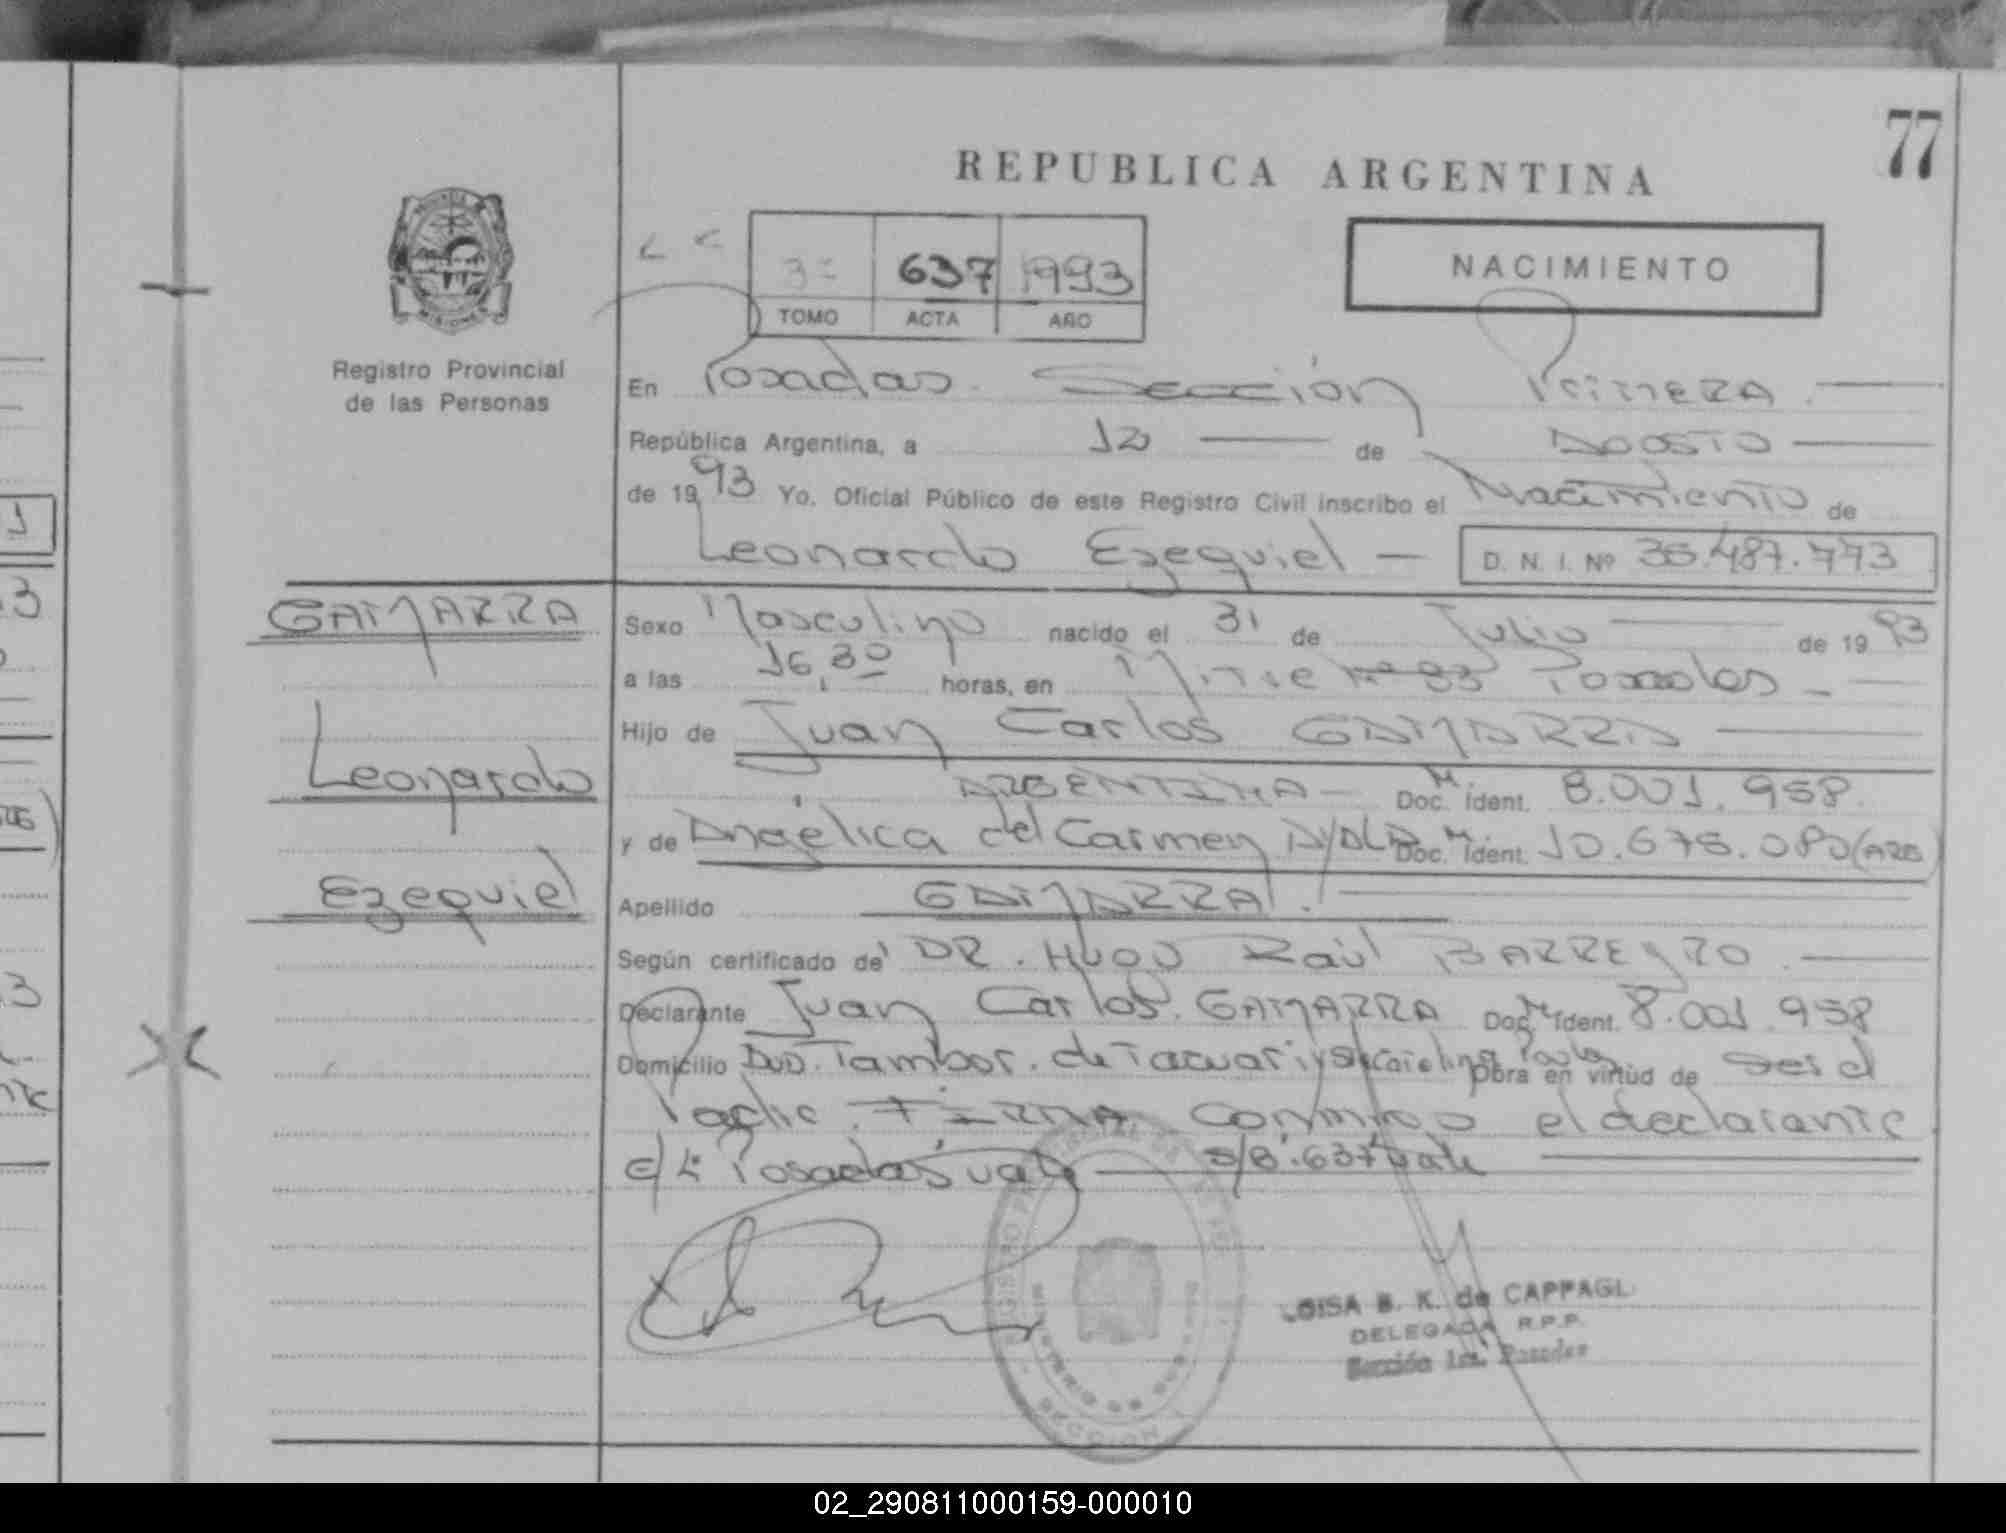 77
REPUBLICA ARGENTINA
3º 637 1993
TOMO ACTA AÑO
NACIMIENTO
MISIONES
Registro Provincial
de las Personas
En Posadas Sección Primera
República Argentina, a 12 de Agosto
de 1993 Yo, Oficial Público de este Registro Civil inscribo el Nacimiento de
Leonardo Ezequiel D. N. I. Nº 36.487.773
GAMARRA
Leonardo
Ezequiel
Sexo Masculino nacido el 31 de Julio de 1993
a las 16,30 horas, en Posadas
Hijo de Juan Carlos GAMARRA
ARGENTINA M. Doc. Ident. 8.001.958
y de Angélica del Carmen AYALA M. Doc. Ident. 10.675.080 (ARG)
Apellido GAMARRA.
Según certificado de DR. HUGO Raúl BARREYRO.
Declarante Juan Carlos. GAMARRA Doc. M. Ident. 8.001.958
Domicilio Avd. Tambor. de Tacuari y Obra en virtud de Ser el
Padre. FIRMA conmigo el declarante
Posadas vale 637 vale
B. K. de CAPPAGL
DELEGADA R.P.P.
Sección 1ra. Posadas
SECCION 1
02_290811000159-000010